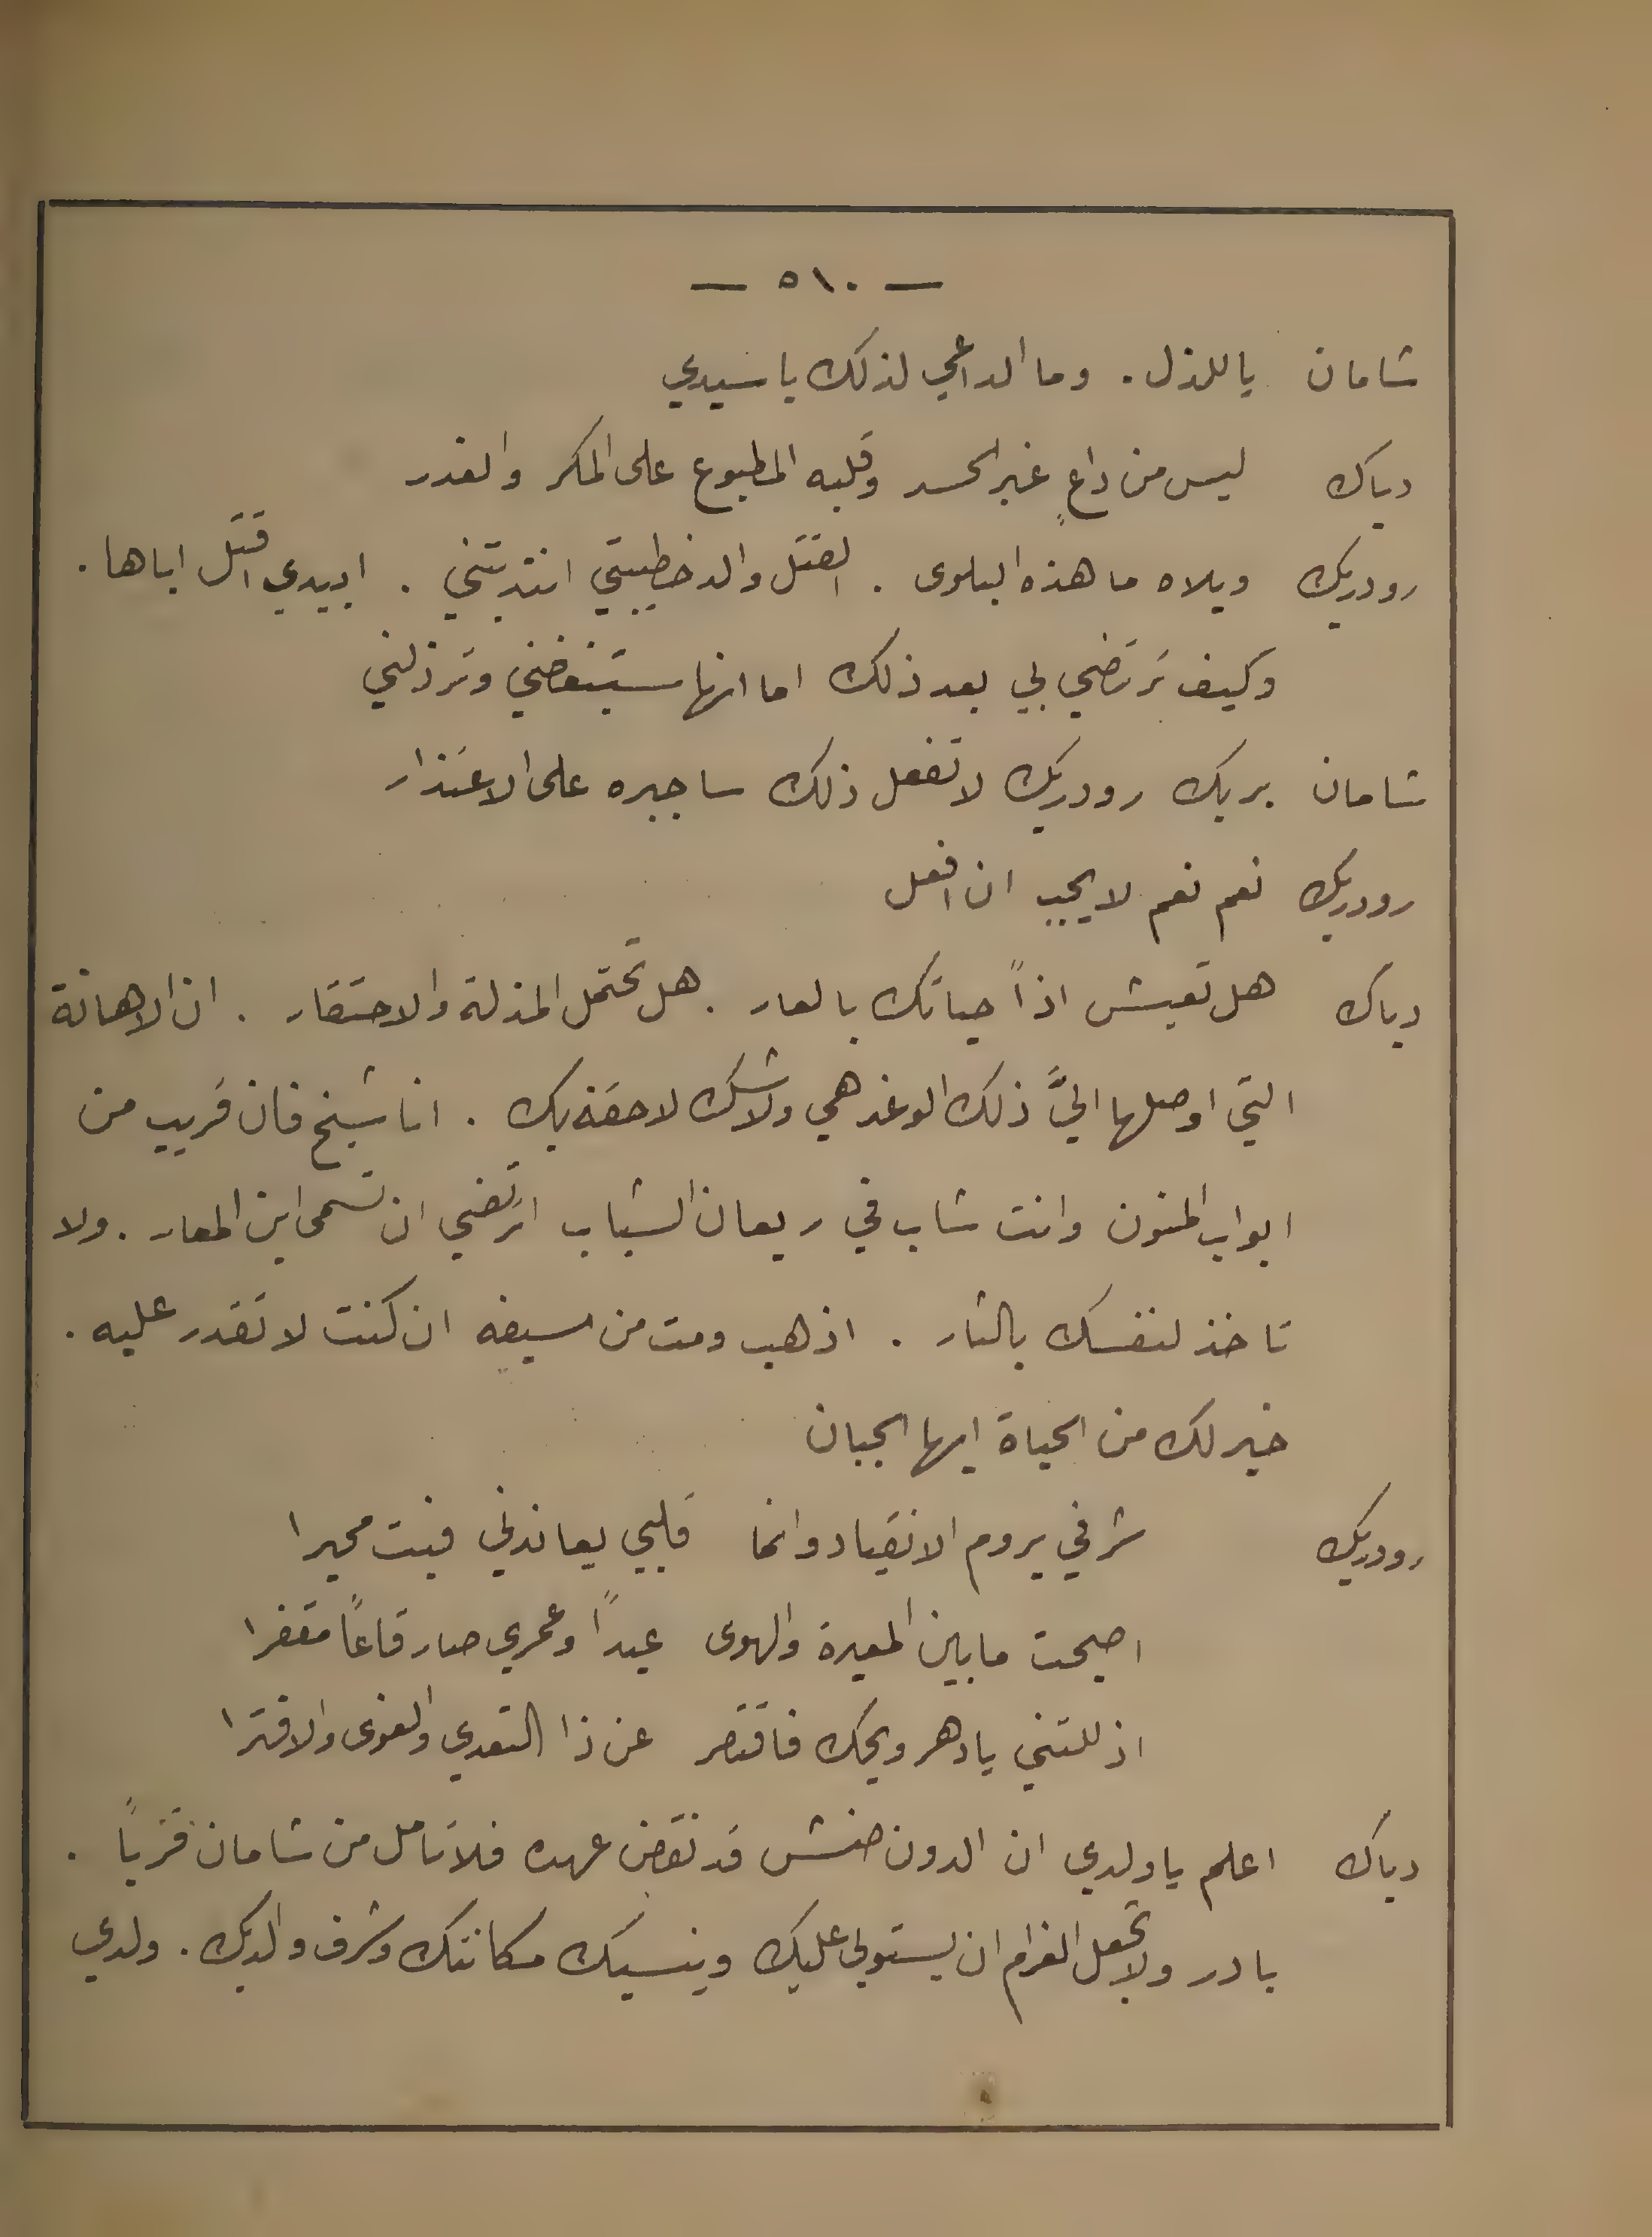 — ٥١٠ —
شامان ياللذل . وما الداعي لذلك يا سيدي
دياك ليس من داعٍ غير الحسد وقلبه المطبوع على المكر والغدر
رودريك ويلاه ما هذه البلوى . القتل والد خطيبتي انتدبتني . ابيدي اقتل اباها .
وكيف ترتضي بي بعد ذلك اما انها ستبغضني وترذلني
شامان بربك رودريك لا تفعل ذلك ساجبره على الاعتذار
رودريك نعم نعم لا يجب ان افعل
دياك هل تعيش اذاً حياتك بالعار . هل تحتمل المذلة والاحتقار . ان الاهانة
التي اوصلها اليَّ ذلك الوغد هي ولا شك لاحقة بك . انا شيخ فان قريب من
ابواب المنون وانت شاب في ريعان الشباب اترتضي ان تسمى ابن المعار . ولا
تاخذ لنفسك بالثار . اذهب ومت من سيفه ان كنت لا تقدر عليه .
خير لك من الحياة ايها الجبان
رودريك شرفي يروم الانقياد وانما قلبي يعاندني فبت محيرا
اصبحت ما بين المعيرة والهوى عبداً وعمري صار قاعاً مقفرا
اذللتني يا دهر ويحك فاقتصر عن ذا التعدي والغوى والافترا
دياك اعلم يا ولدي ان الدون صنش قد نقض عهده فلا تامل من شامان قرباً .
بادر ولا تجعل الغرام ان يستولى عليك وينسيك مكانتك وشرف والديك . ولدي